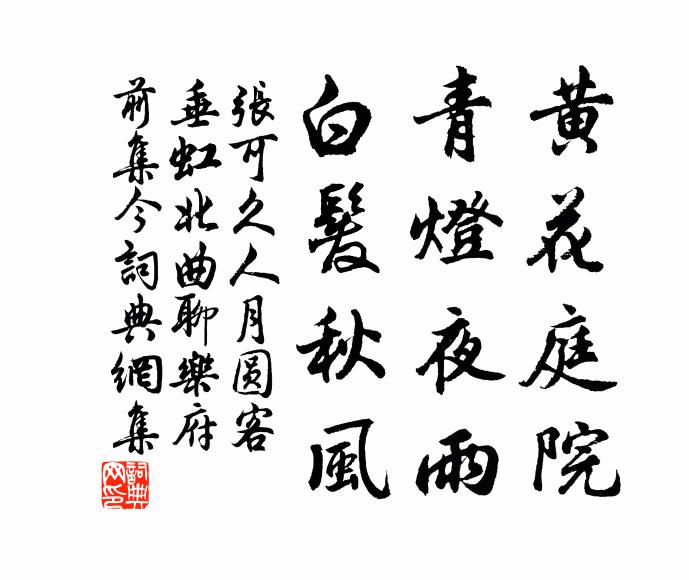 黄花庭院
青燈夜雨
白髮秋風
張可久人月圓客
垂虹北曲聊樂府
前集今詞典網集